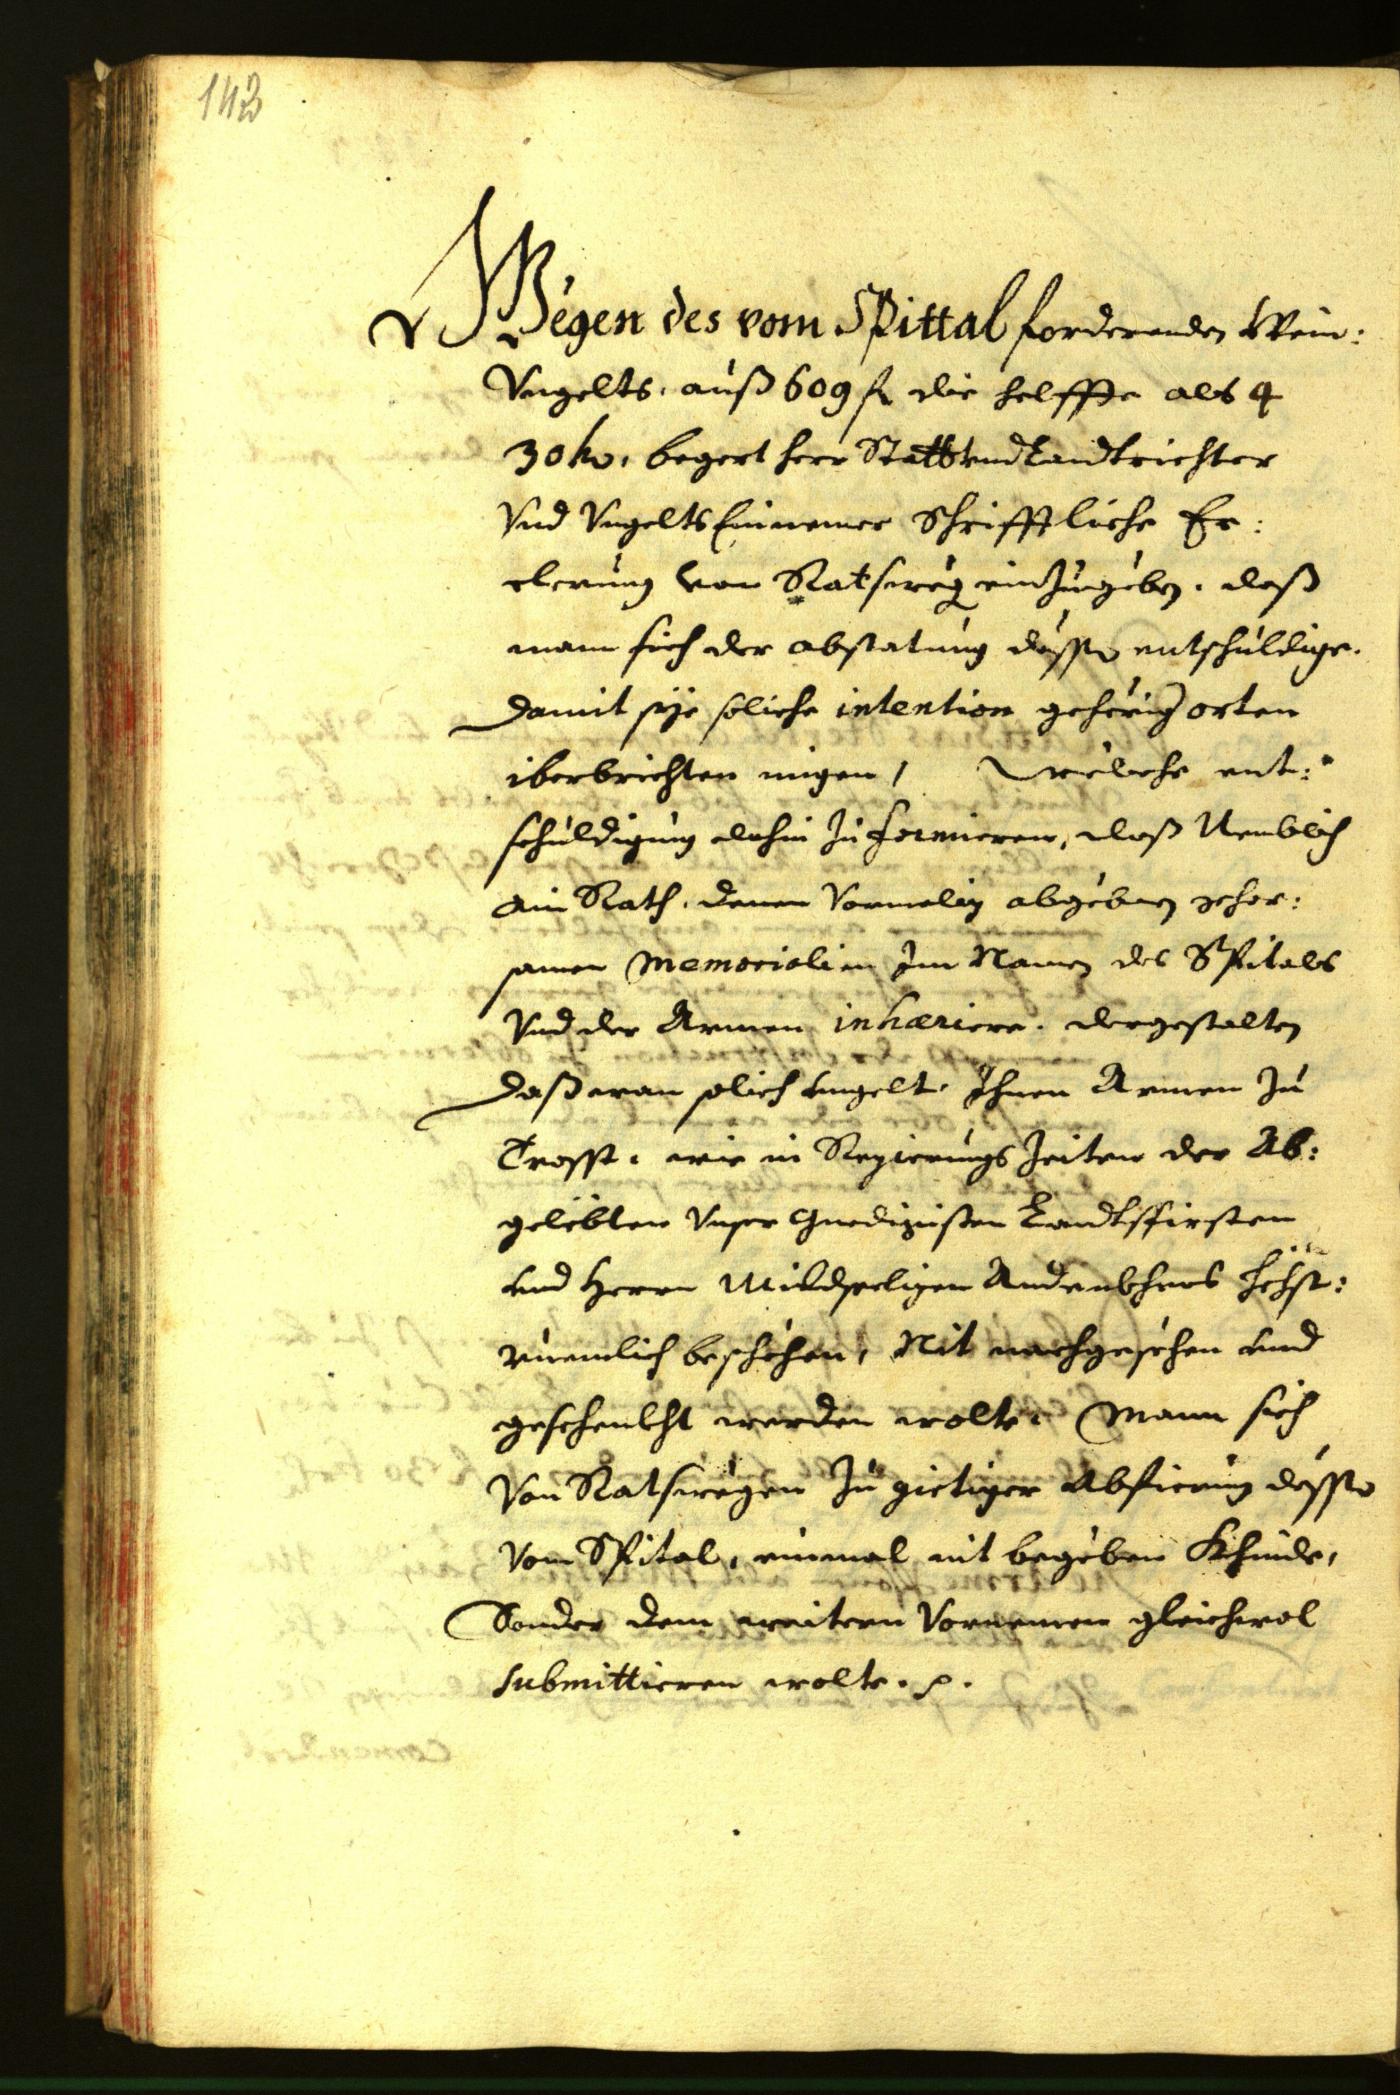 143
Wegen des vom Spittal forderenden Wein:
Vngelts, auß 609 fl die helffte als 4
30 kr, begert herr Statt vnd Landtrichter
Vnd Vngelts Einnemer Schrifftliche Er:
clerung von Ratsweg einzugeben, daß
mann sich der abstatung desse entschuldige.
Damit sÿe soliche intention gehörig orten
iberbrichten migen, Welche ent:
schuldigung dahin zu formieren, daß Nemblich
ain Rath, denen Vormalig abgebnen gehor:
samen memorialien Im Namen des Spitals
Vnd der Armen inhæriere. dergestalten
Daß wan solich vngelt Ihnen Armen zu
Trosst, wie in Regierungs Zeiten der Ab:
gelebten Vnser Gnedigisten Landtsfirsten
vnd Herrn Mildseeligen Andenkhens höhst:
ruemlich beschehen, Nit nachgesehen vnd
geschenkht werden wolte, Mann sich
Von Ratswegen zu gietiger Abfierung desse
Vom Spital, einmal nit begeben Khinde,
Sonder dem weitern Vornemen gleichwol
submittieren wolte.